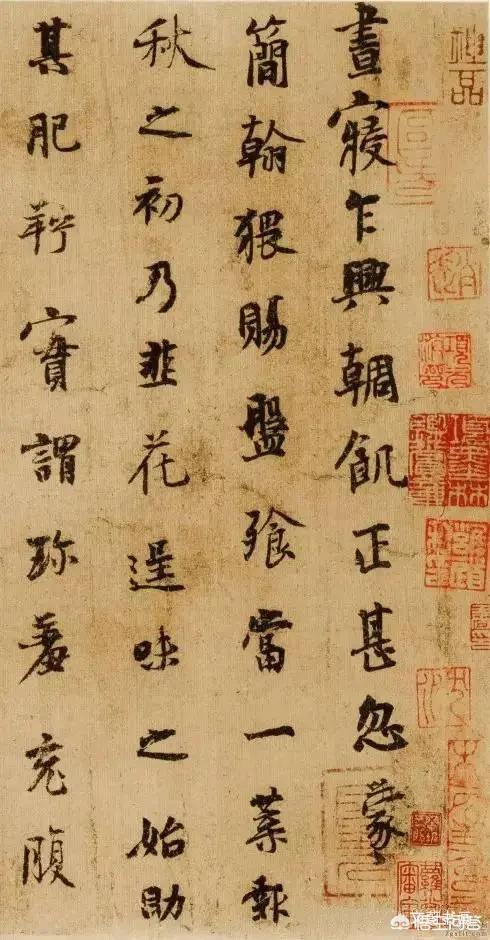 晝寢乍興輖飢正甚忽蒙
簡翰猥賜盤飧當一葉報
秋之初乃韭花逞味之始助
其肥羜實謂珎羞充腹